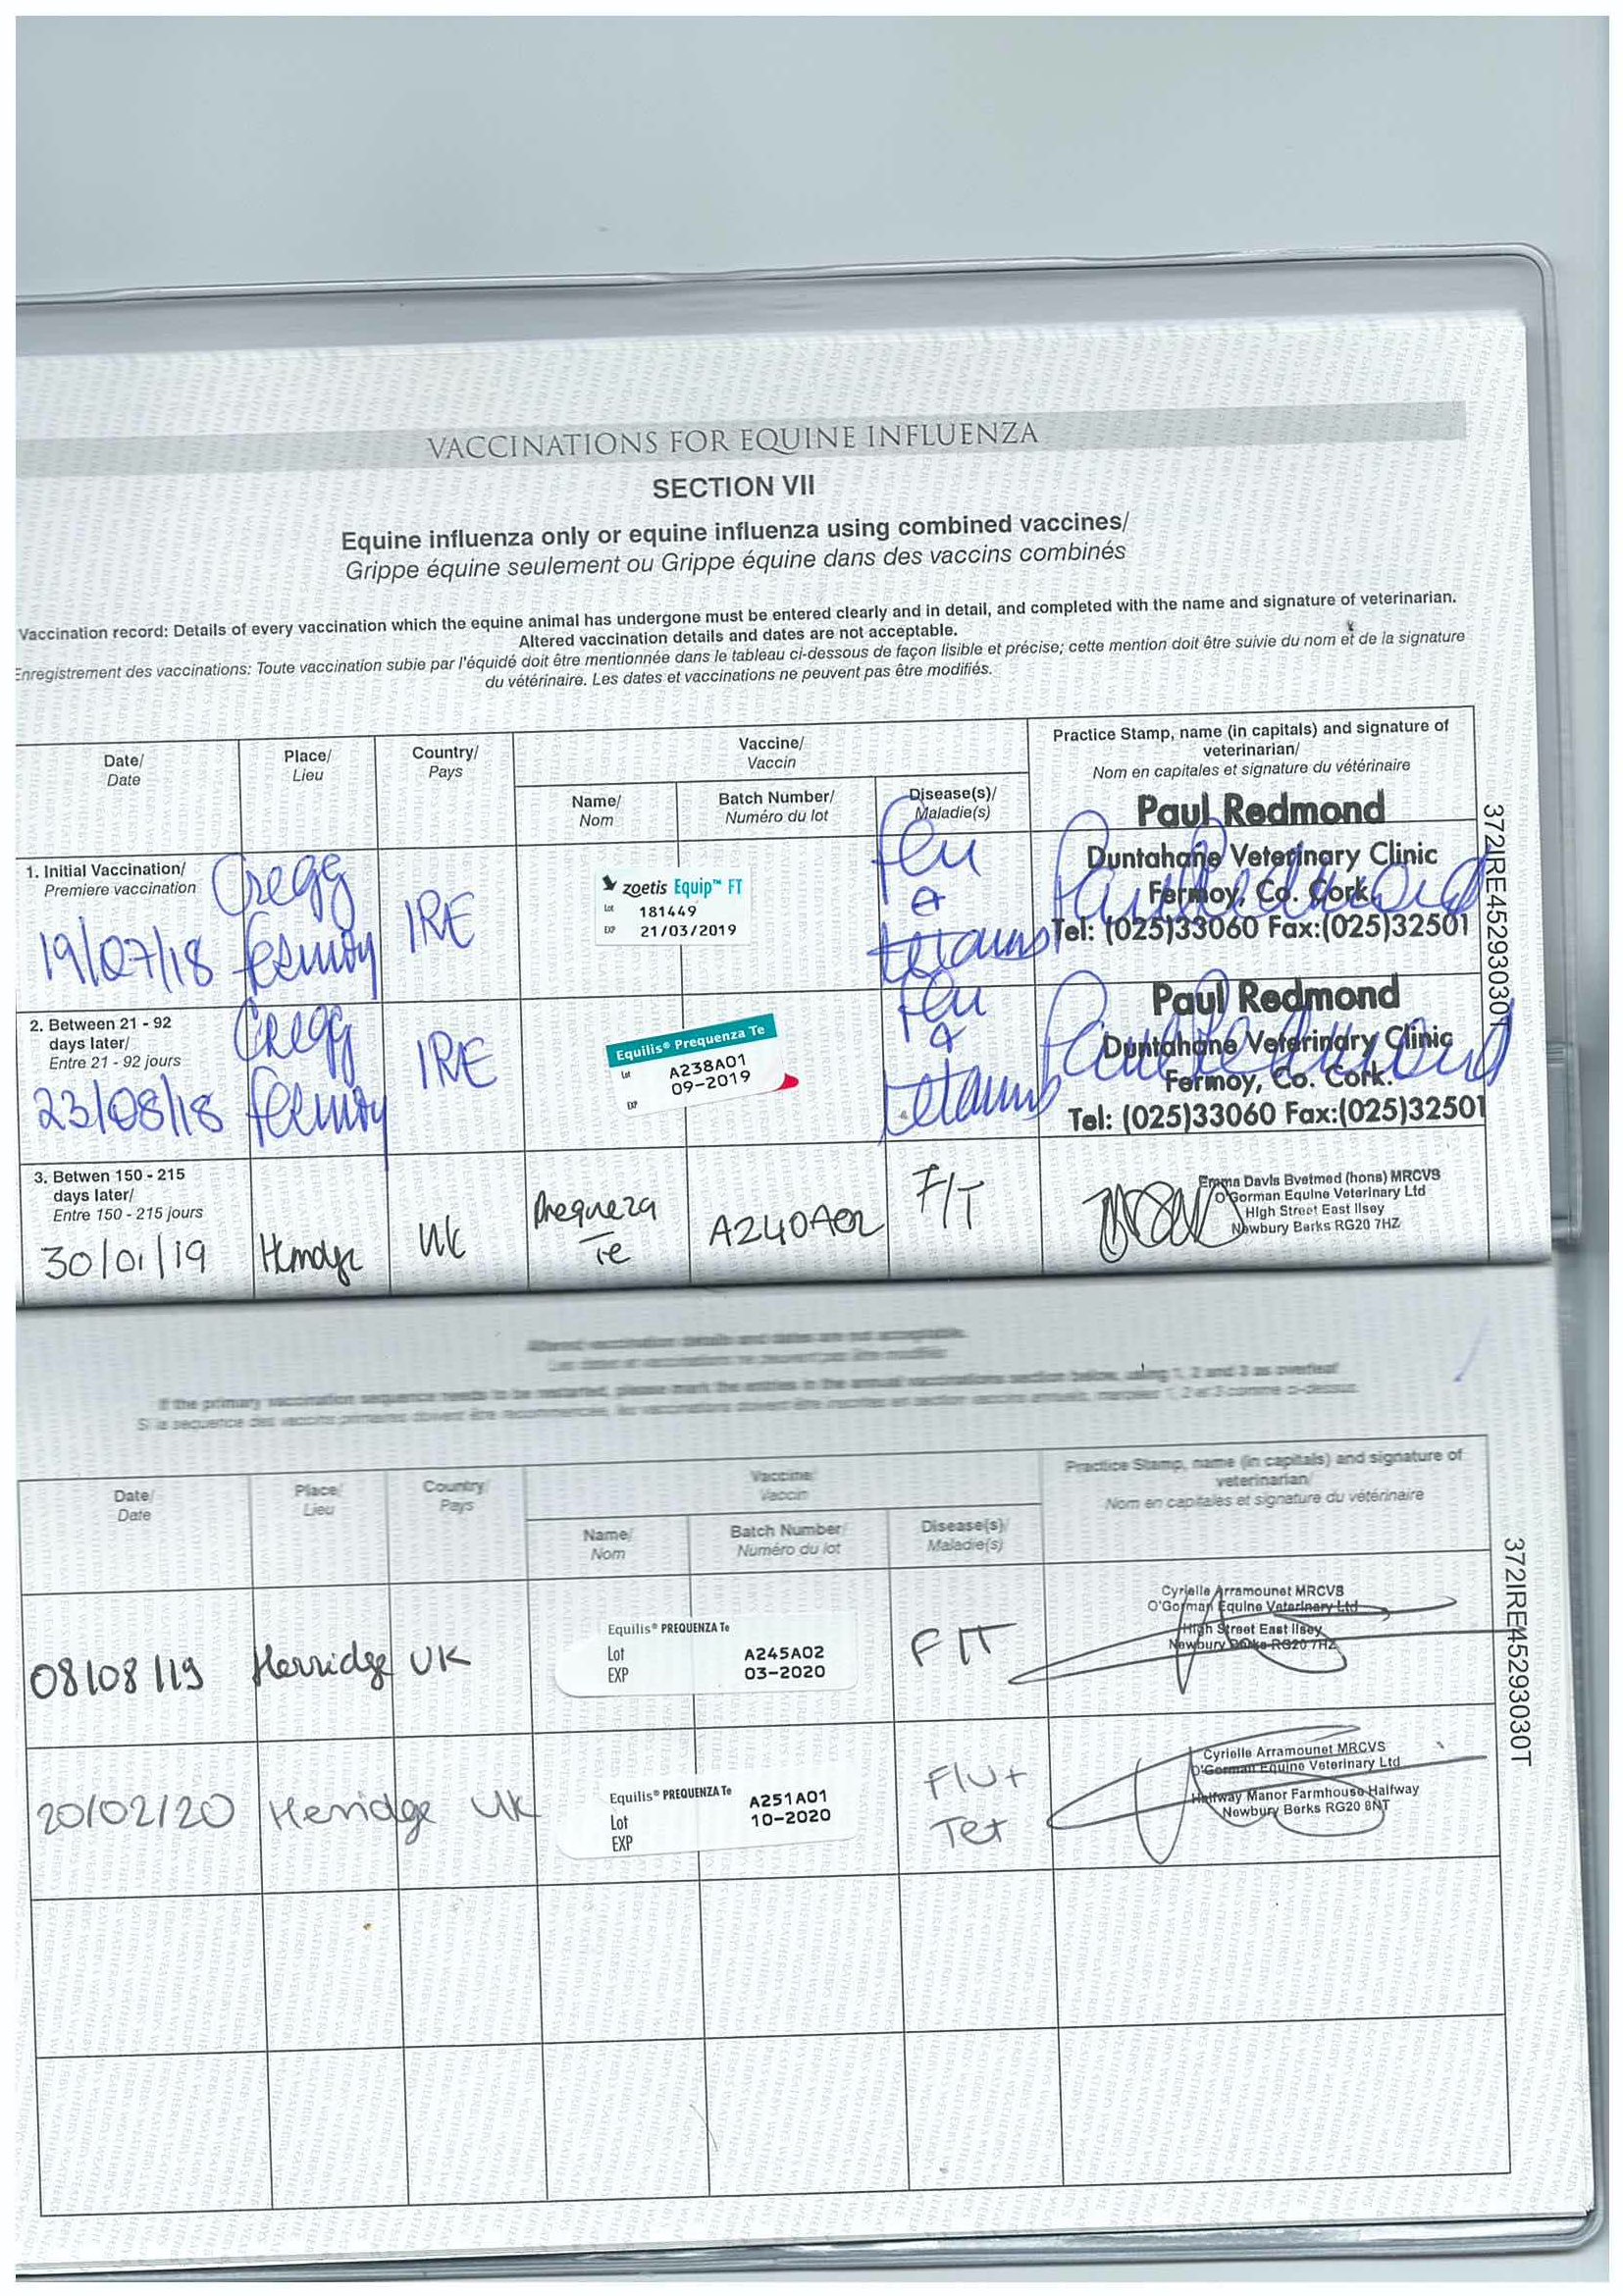 VACCINATIONS FOR EQUINE INFLUENZA
SECTION VII
Equine influenza only or equine influenza using combined vaccines/
Grippe équine seulement ou Grippe équine dans des vaccins combinés
Vaccination record: Details of every vaccination which the equine animal has undergone must be entered clearly and in detail, and completed with the name and signature of veterinarian.
Altered vaccination details and dates are not acceptable.
Enregistrement des vaccinations: Toute vaccination subie par l'équidé doit être mentionnée dans le tableau ci-dessous de façon lisible et précise; cette mention doit être suivie du nom et de la signature
du vétérinaire. Les dates et vaccinations ne peuvent pas être modifiés.
Date/
Date
Place/
Lieu
Country/
Pays
Vaccine/
Vaccin
Name/
Nom
Batch Number/
Numéro du lot
Disease(s)/
Maladie(s)
Practice Stamp, name (in capitals) and signature of
veterinarian/
Nom en capitales et signature du vétérinaire
1. Initial Vaccination/
Premiere vaccination
19/07/18
Cregg
Fermoy
IRE
zoetis Equip™ FT
Lot 181449
EXP 21/03/2019
flu
&
tetanus
Paul Redmond
Duntahane Veterinary Clinic
Fermoy, Co. Cork.
Tel: (025)33060 Fax:(025)32501
2. Between 21 - 92
days later/
Entre 21 - 92 jours
23/08/18
Cregg
Fermoy
IRE
Equilis® Prequenza Te
Lot A238A01
EXP 09-2019
flu
&
tetanus
Paul Redmond
Duntahane Veterinary Clinic
Fermoy, Co. Cork.
Tel: (025)33060 Fax:(025)32501
3. Betwen 150 - 215
days later/
Entre 150 - 215 jours
30/01/19
UK
Prequeza
Te
A240A02
F/T
Emma Davis Bvetmed (hons) MRCVS
O'Gorman Equine Veterinary Ltd
High Street East Ilsey
Newbury Berks RG20 7HZ
372IRE45293030T
Altered vaccination details and dates are not acceptable.
Les dates et vaccinations ne peuvent pas être modifiés
If the primary vaccination sequence needs to be restarted, please mark the entries in the annual vaccinations section below, using 1, 2 and 3 as overleaf
Si la sequence des vaccins primaires doivent être recommencée, les vaccinations doivent être inscrites en section vaccins annuels, marquées 1, 2 et 3 comme ci-dessus
Date/
Date
Place/
Lieu
Country/
Pays
Vaccine/
Vaccin
Name/
Nom
Batch Number/
Numéro du lot
Disease(s)/
Maladie(s)
Practice Stamp, name (in capitals) and signature of
veterinarian/
Nom en capitales et signature du vétérinaire
08/08/19
Herridge
UK
Equilis® PREQUENZA Te
Lot A245A02
EXP 03-2020
F/T
Cyrielle Arramounet MRCVS
O'Gorman Equine Veterinary Ltd
High Street East Ilsey
Newbury Berks RG20 7HZ
20/02/20
Herridge
UK
Equilis® PREQUENZA Te
Lot A251A01
EXP 10-2020
Flu+
Tet
Cyrielle Arramounet MRCVS
O'Gorman Equine Veterinary Ltd
Halfway Manor Farmhouse Halfway
Newbury Berks RG20 8NT
372IRE45293030T